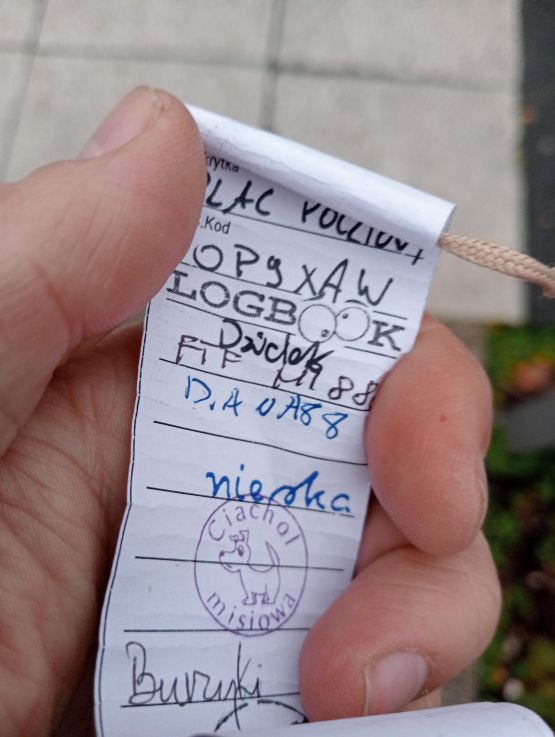 krytka
PLAC POCZTOWY
.Kod
OP9XAW
LOGBOOK
Dzidek
FIF M188
D.ANA88
nieska
Ciachol
misiowa
Buryki